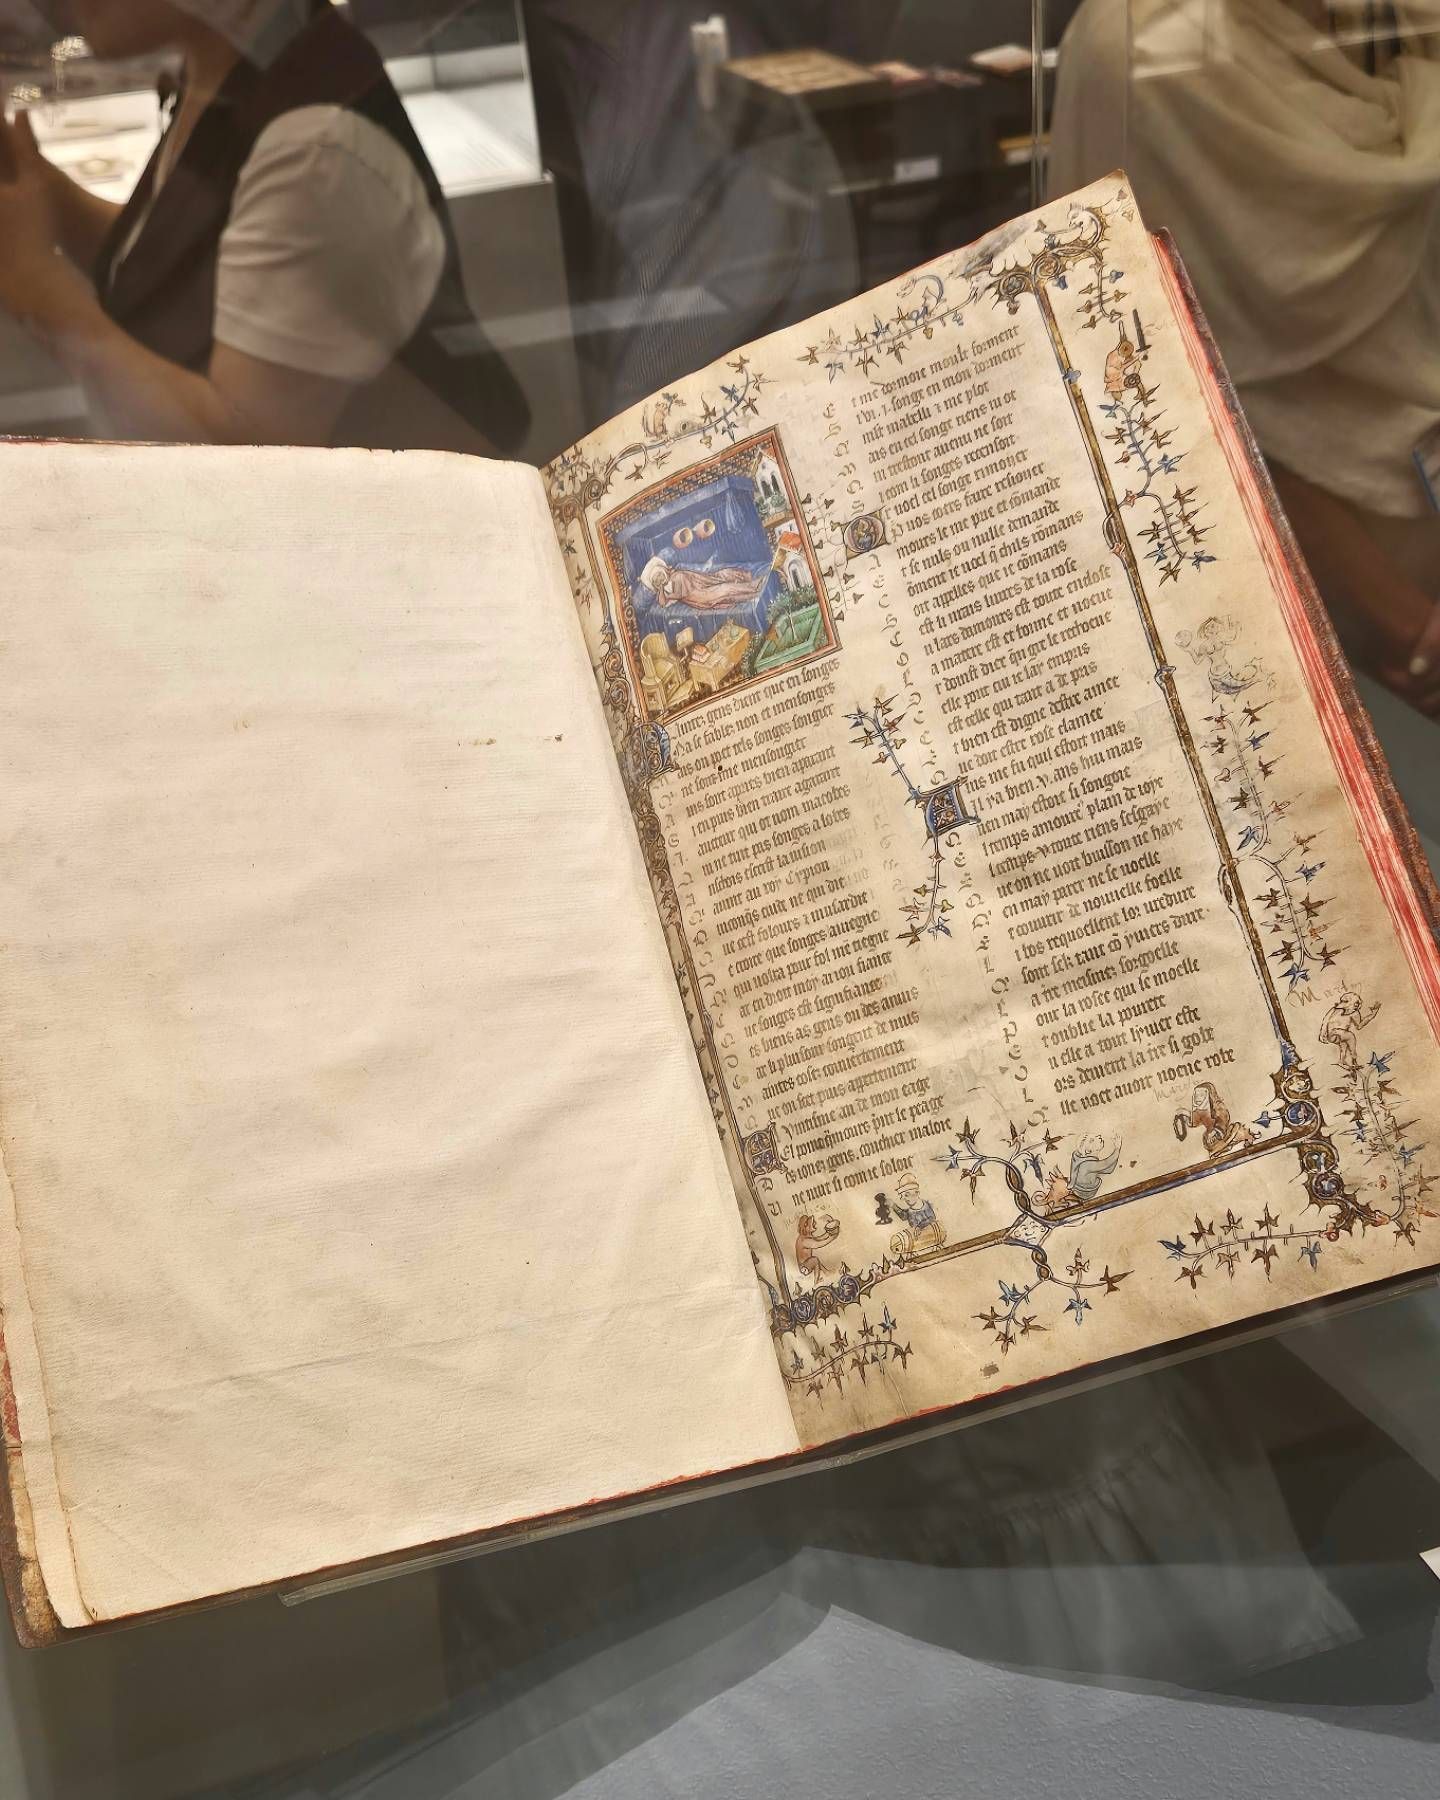 Maintez gens dient que en songes
Na se fables non et mensonges
Mais on puet tels songes songier
ne sont mie mensongier
Ains sont apres bien aparant
i en puis bien traire a garant
aucteur qui ot nom macobes
ui ne tint pas songes a lobes
Anschois escrist la vision
avint au roy Cypion
iconqs cuide ne qui die
Que cest folours & musardie
e croire que songes aviegne
qui volra pour fol me tiegne
Car en droit moy ai iou fiance
Que songes est signifiance
Des biens as gens ou des anuis
Car li pluisour songent de nuis
Maintes coses couvertement
Que on voet puis apertement
Vintisme an de mon eage
El point qamours prent le peage
Des iones gens. couchier maloie
Une nuit si com ie soloie
Et me dormoie moult forment
Si vi .i. songe en mon dorment
mlt mabelli & me plot
Mais en cel songe riens ni ot
Qui trestout avenu ne soit
Si com li songes recensoit
Or voel cel songe rimoyer
P vos coers faire resioyer
Amours le me prie et cōmande
Et se nuls ou nulle demande
Cōment ie voel q̄ chils rōmans
Soit appelles que ie cōmans
Cest li vrais livres de la rose
U lars damours est toute enclose
La matere est et bonne et noeve
Or doinst diex q̄n gre le rechoeve
Celle pour cui ie lay empris
Cest celle qui tant a de pris
Et bien est digne destre amee
Que doit estre rose clamee
Avis me fu quil estoit mais
Il y a bien .v. ans hui mais
Quen may estoie si songoie
El temps amoure' plain de ioye
El temps v toute riens sesgaye
Que on ne voit buisson ne haye
Quen may parer ne se voelle
Et couvrir de nouvelle foelle
Li bos requoellent lor verdure
Qui sont sek tant cō yviers dure
La t're meismes sorgoelle
Pour la rosee qui le moelle
Et oublie la povrete
U elle a tout lyvier este
Lors devient la t're si gobe
Quelle voet avoir noeve robe